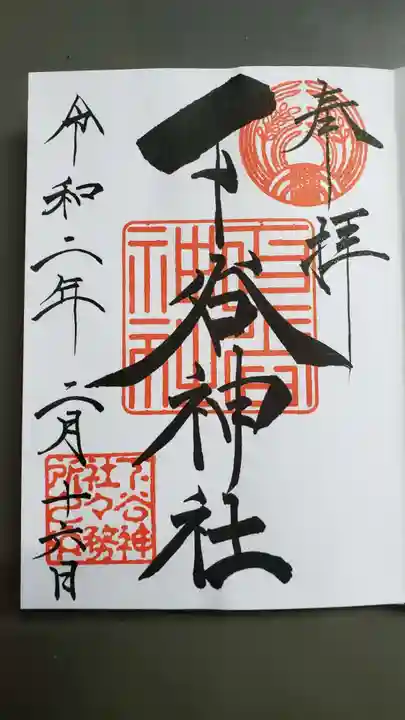 奉拝
下谷神社
令和二年 二月十六日
下谷神
社々務
所之印